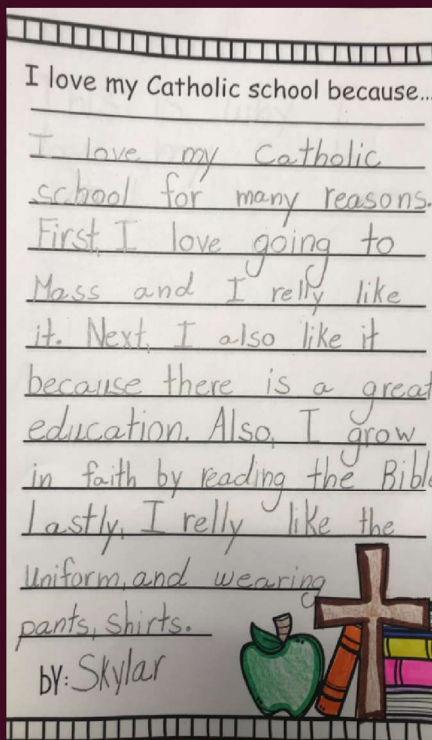 I love my Catholic school because...
I love my Catholic
school for many reasons.
First, I love going to
Mass and I relly like
it. Next, I also like it
because there is a great
education. Also, I grow
in faith by reading the Bible
Lastly, I relly like the
uniform, and wearing
pants, shirts.
by: Skylar